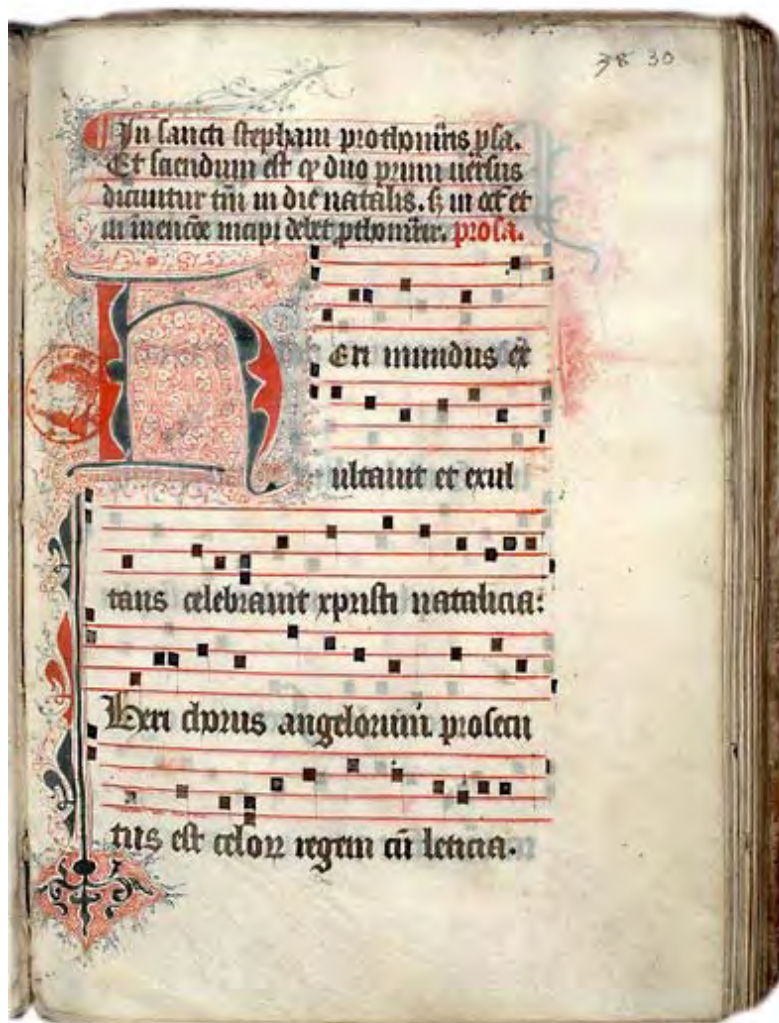 38 30
In sancti stephani prothomris psa.
Et sciendum est q duo primi uersus
dicuntur tm in die natalis. s in oct et
in inencõe incipi debet pthomrtir. prosa.
Heri mundus ex
ultauit et exul
tans celebrauit xpristi natalicia:
Heri chorus angelorum prosecu
tus est celoꝝ regem cũ leticia.